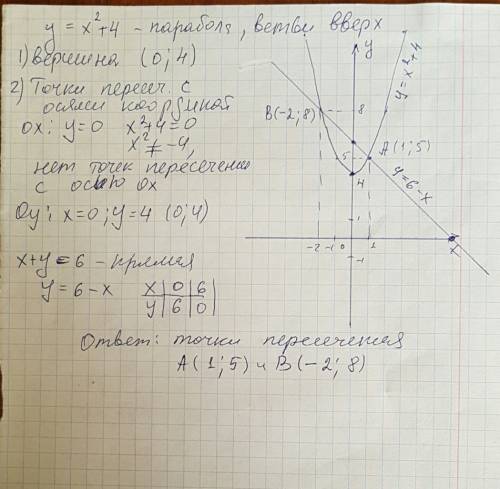 y = x²+4 - парабола, ветви вверх
1) вершина (0; 4)
2) Точки пересеч. с
осями координат
ox: y=0 x²+4=0
x² ≠ -4,
нет точек пересечения
с осью ox
Oy: x=0; y=4 (0;4)
x+y=6 - прямая
y=6-x
x | 0 | 6
y | 6 | 0
Ответ: точки пересечения
A(1; 5) и B(-2; 8)
y
y=x²+4
B(-2; 8)
8
A(1; 5)
5
y=6-x
4
1
-2 -1 0 1
x
-1